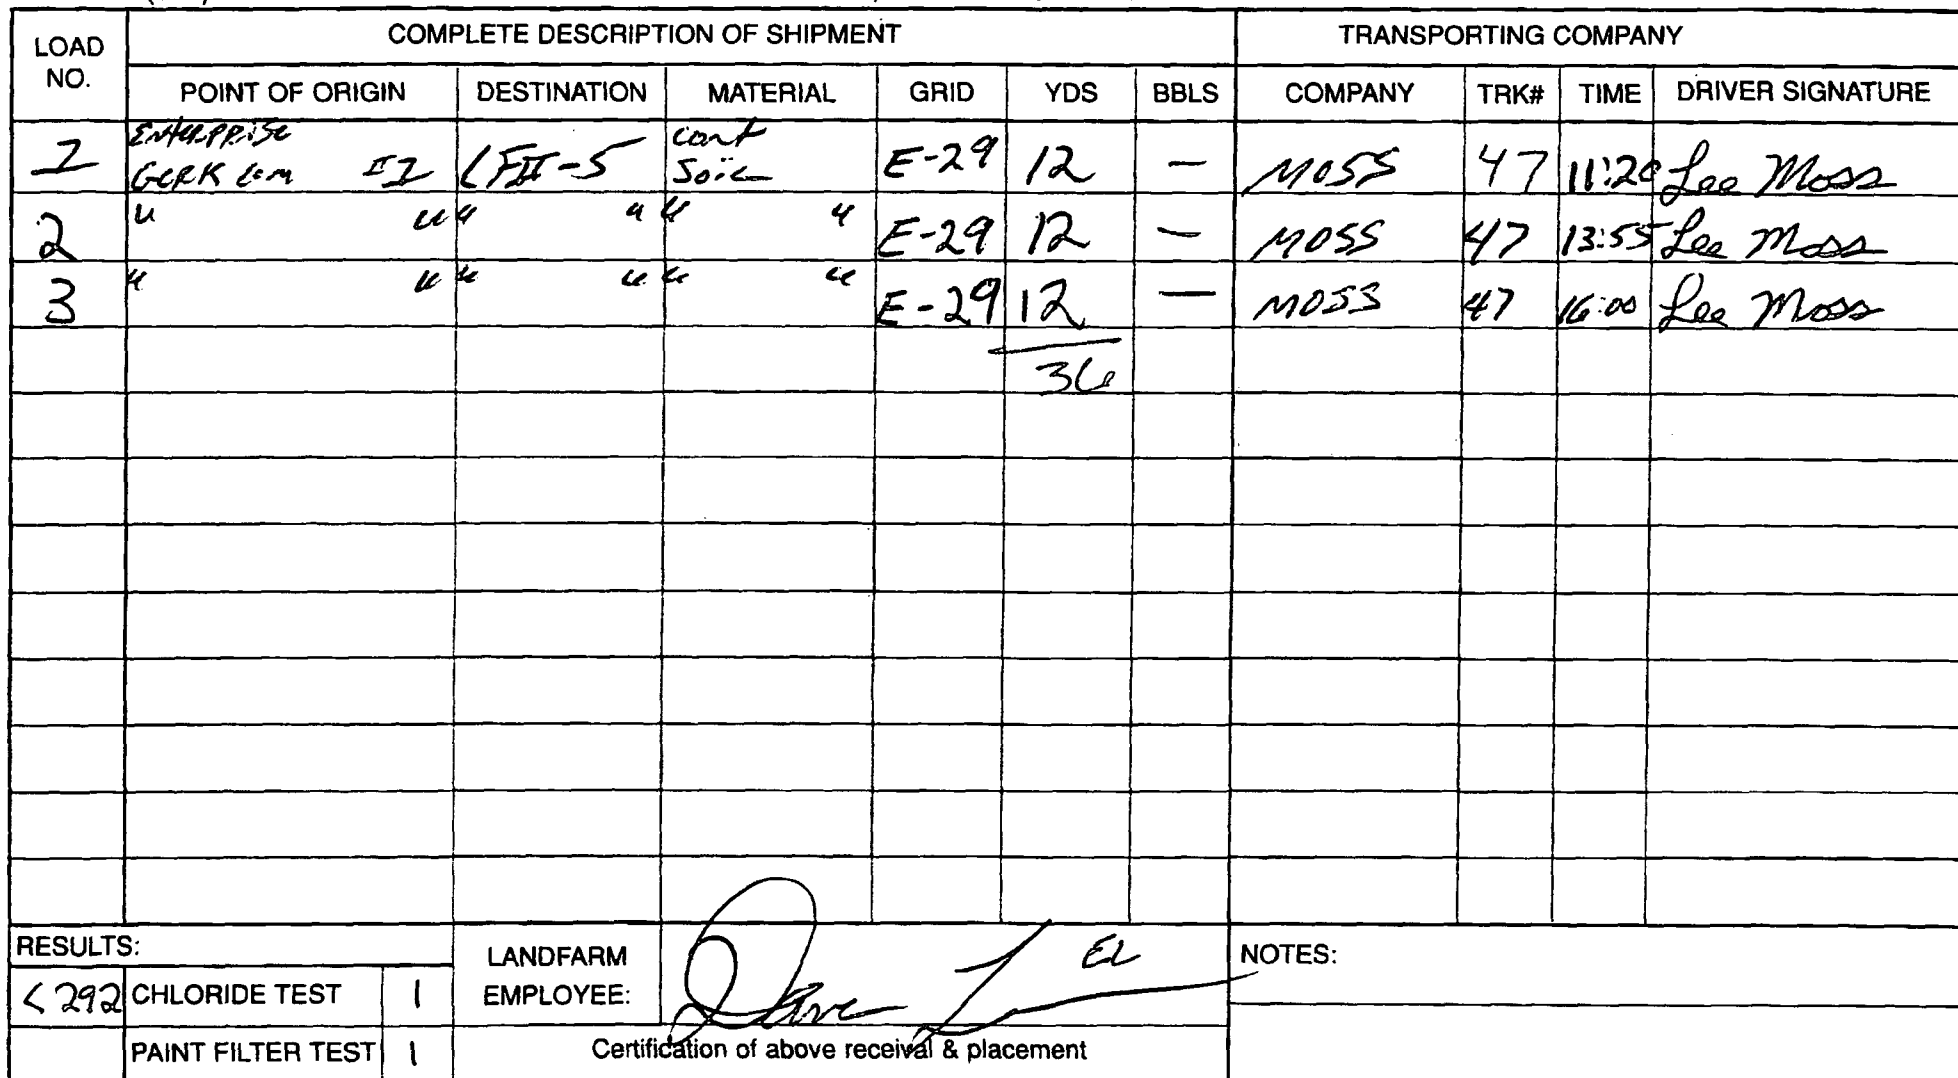 COMPLETE DESCRIPTION OF SHIPMENT TRANSPORTING COMPANY
LOAD NO. POINT OF ORIGIN DESTINATION MATERIAL GRID YDS BBLS COMPANY TRK# TIME DRIVER SIGNATURE
Enterprise cont
1 II LFII-5 Soil E-29 12 — MOSS 47 11:20 Lee Moss
2 " " " " " " E-29 12 — MOSS 47 13:55 Lee Moss
3 " " " " " " E-29 12 — MOSS 47 16:00 Lee Moss
36
RESULTS: LANDFARM EMPLOYEE: EL NOTES:
<292 CHLORIDE TEST 1
PAINT FILTER TEST 1 Certification of above receival & placement